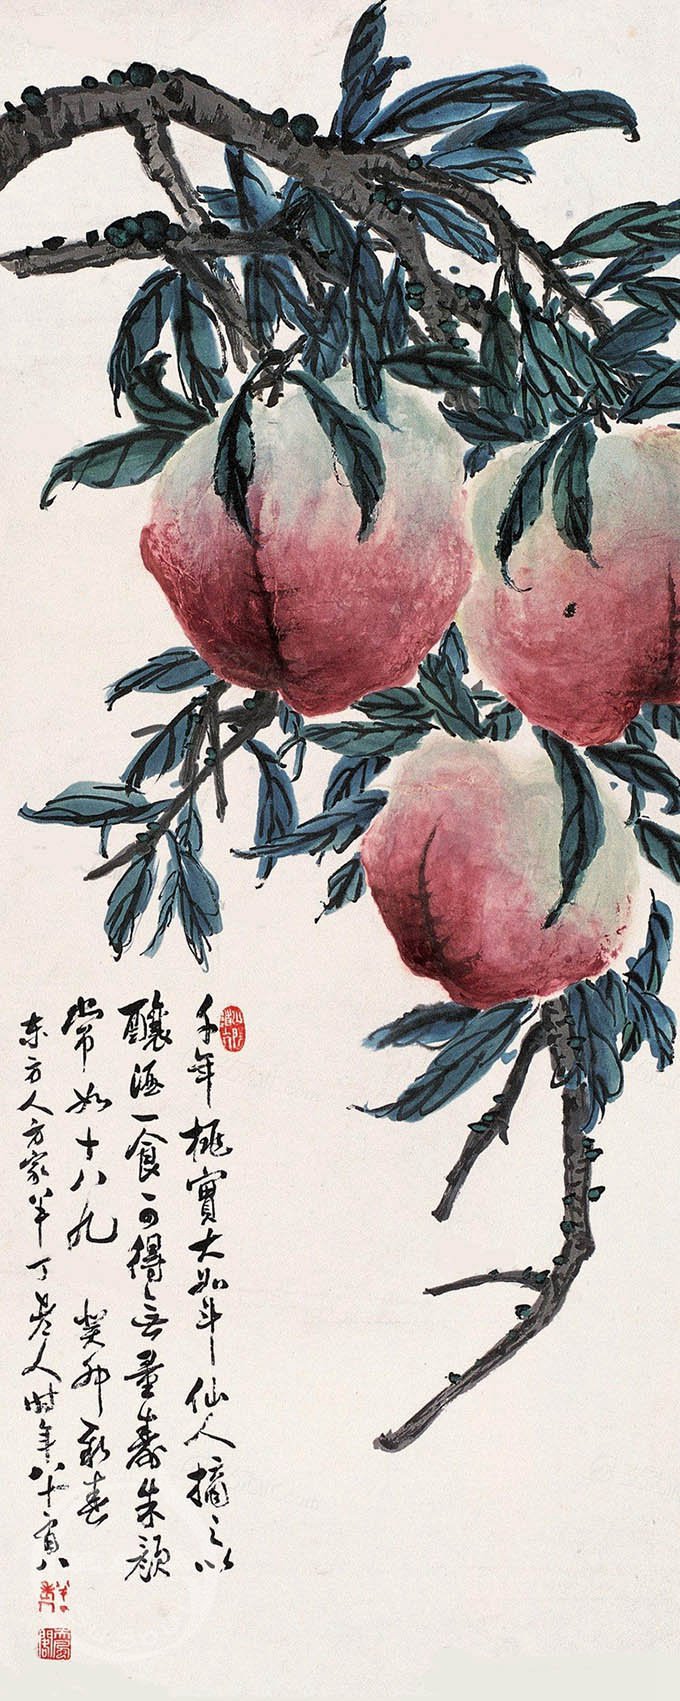 千年桃實大如斗仙人摘之以
釀酒一食可得無量壽朱顏
常如十八九 癸卯新春
東方人方家半丁老人時年八十有八